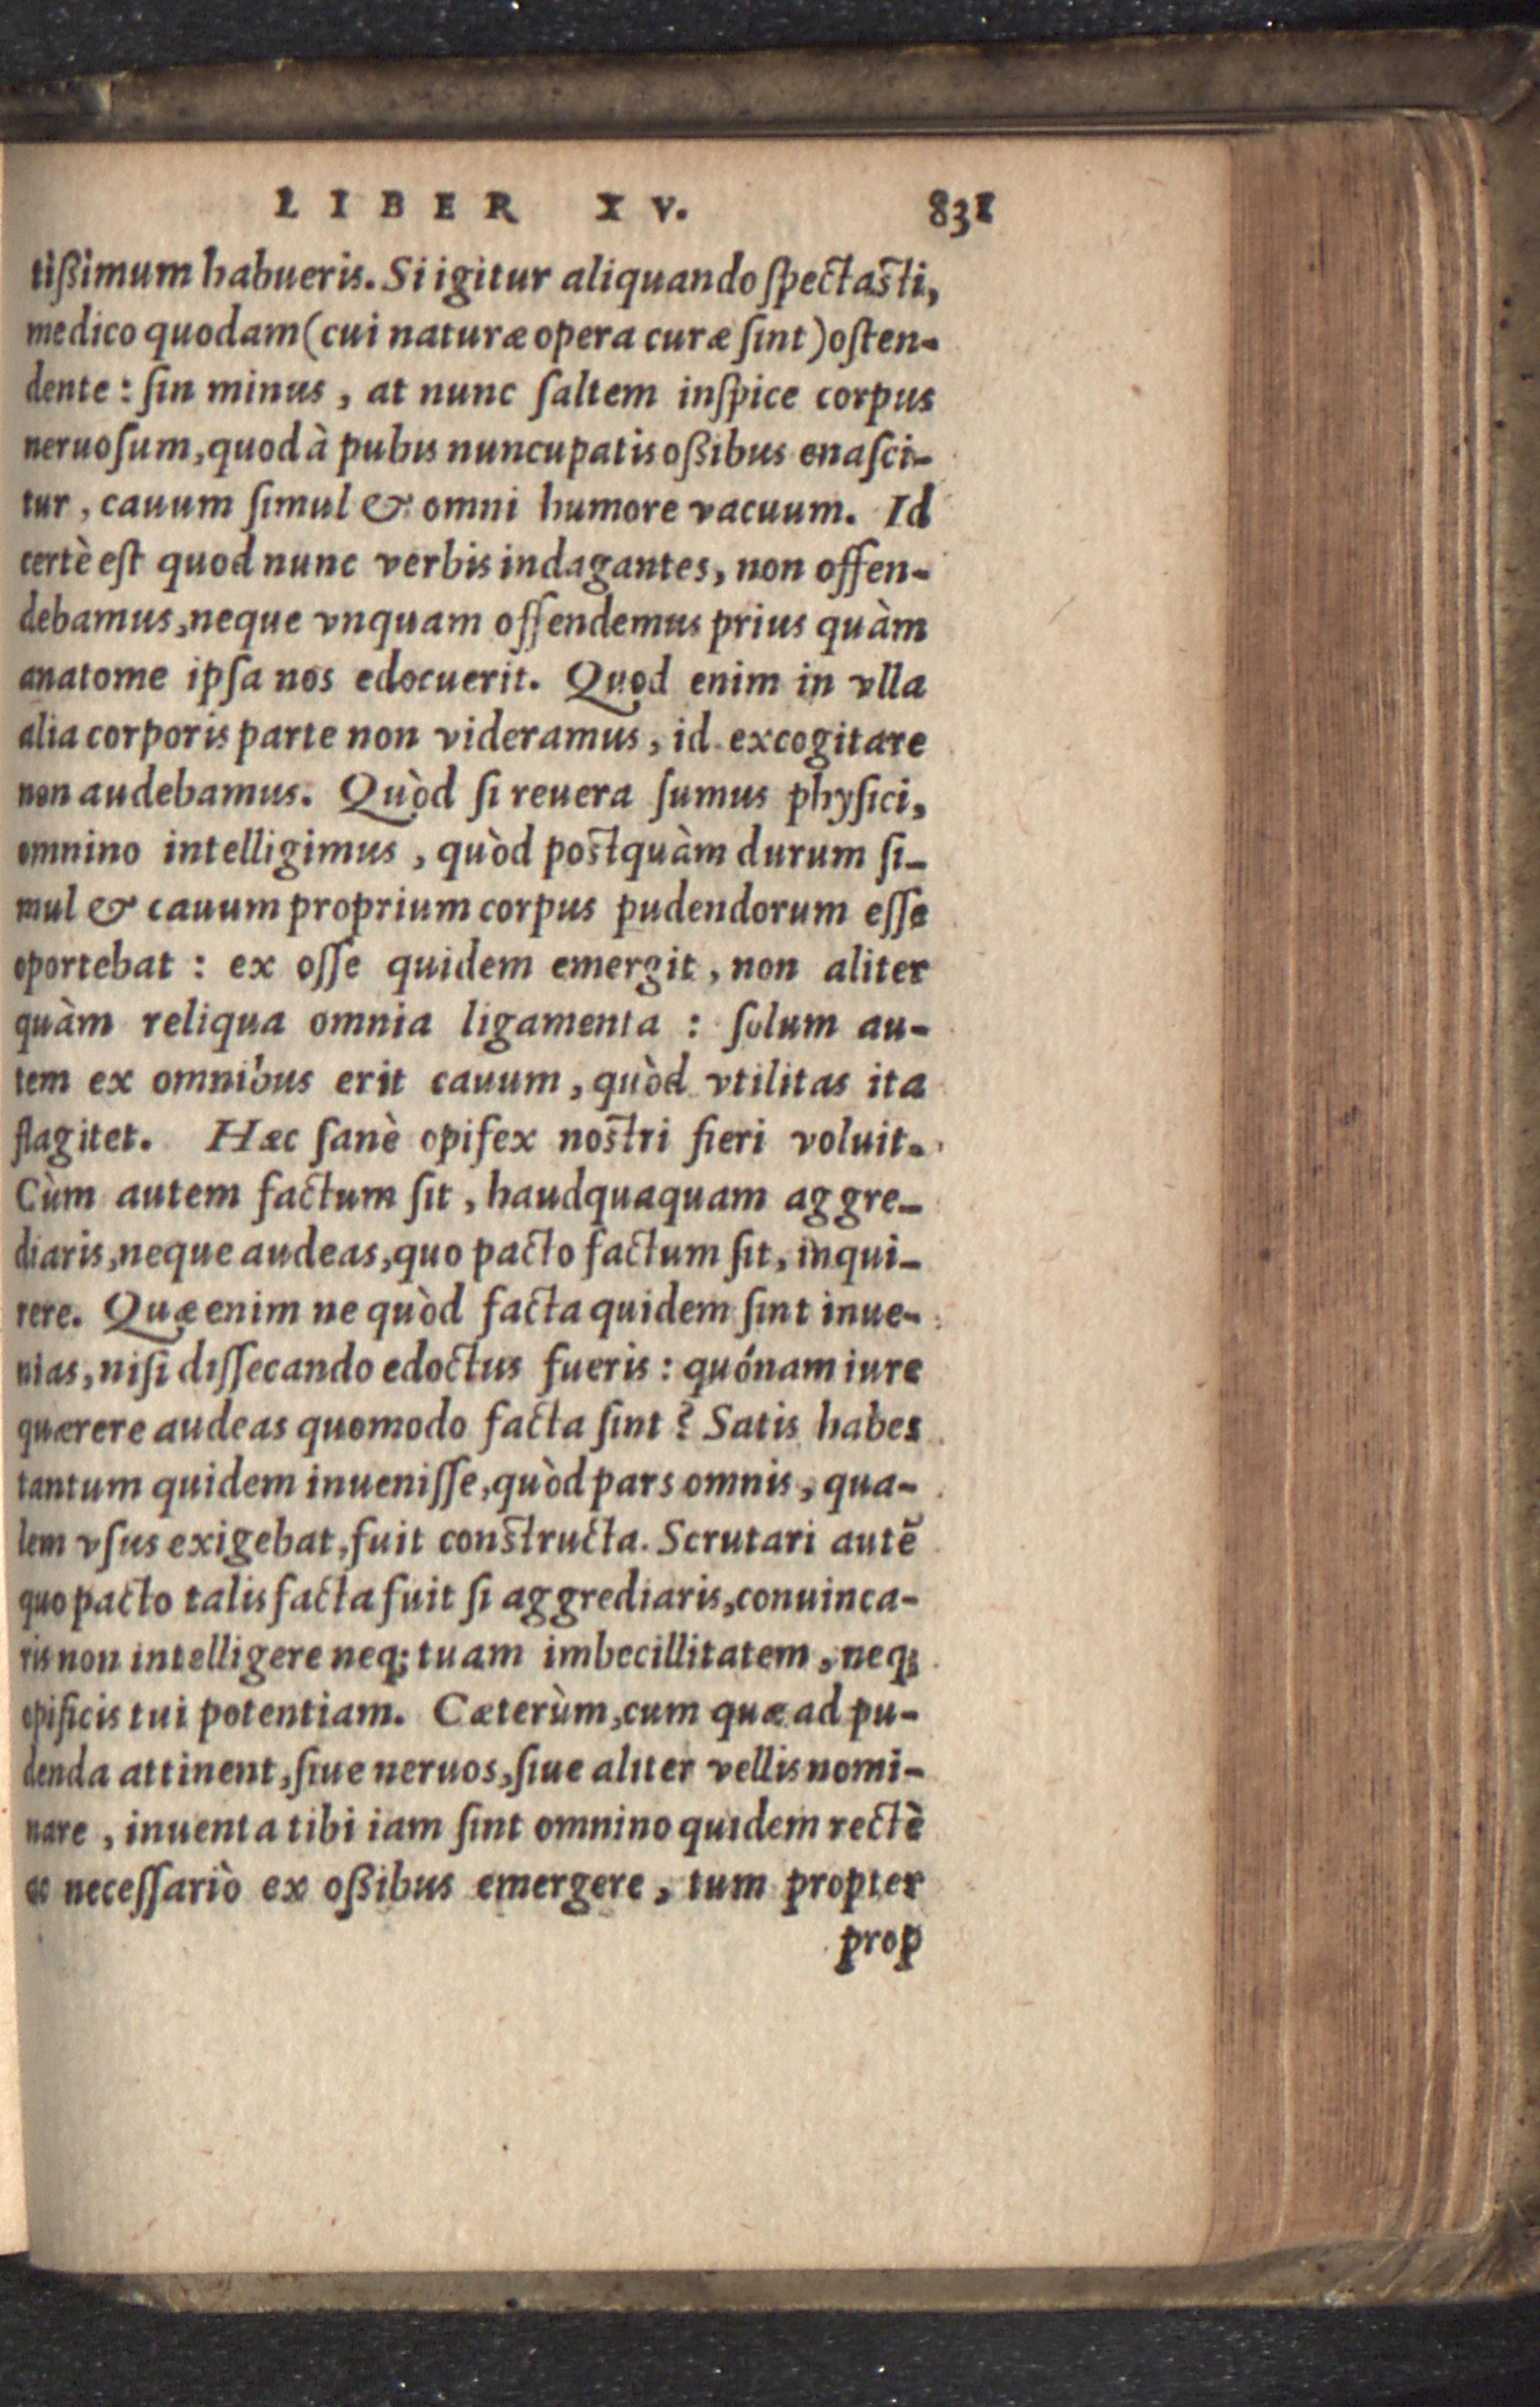 LIBER XV. 831
tißimum habueris. Si igitur aliquando ſpectaſti,
medico quodam (cui naturæ opera curæ ſint) oſten-
dente: ſin minus, at nunc ſaltem inſpice corpus
neruoſum, quod à pubis nuncupatis oßibus enaſci-
tur, cauum ſimul & omni humore vacuum. Id
certè eſt quod nunc verbis indagantes, non offen-
debamus, neque vnquam offendemus prius quàm
anatome ipſa nos edocuerit. Quod enim in vlla
alia corporis parte non videramus, id excogitare
non audebamus. Quòd ſi reuera ſumus phyſici,
omnino intelligimus, quòd poſtquàm durum ſi-
mul & cauum proprium corpus pudendorum eſſe
oportebat: ex oſſe quidem emergit, non aliter
quàm reliqua omnia ligamenta: ſolum au-
tem ex omnibus erit cauum, quòd vtilitas ita
flagitet. Hæc ſanè opifex noſtri fieri voluit.
Cùm autem factum ſit, haudquaquam aggre-
diaris, neque audeas, quo pacto factum ſit, inqui-
rere. Quæ enim ne quòd facta quidem ſint inue-
nias, niſi diſſecando edoctus fueris: quónam iure
quærere audeas quomodo facta ſint? Satis habes
tantum quidem inueniſſe, quòd pars omnis, qua-
lem vſus exigebat, fuit conſtructa. Scrutari autē
quo pacto talis facta fuit ſi aggrediaris, conuinca-
ris non intelligere neq; tuam imbecillitatem, neq;
opificis tui potentiam. Cæterùm, cum quæ ad pu-
denda attinent, ſiue neruos, ſiue aliter vellis nomi-
nare, inuenta tibi iam ſint omnino quidem rectè
ac neceſſariò ex oßibus emergere, tum propter
prop